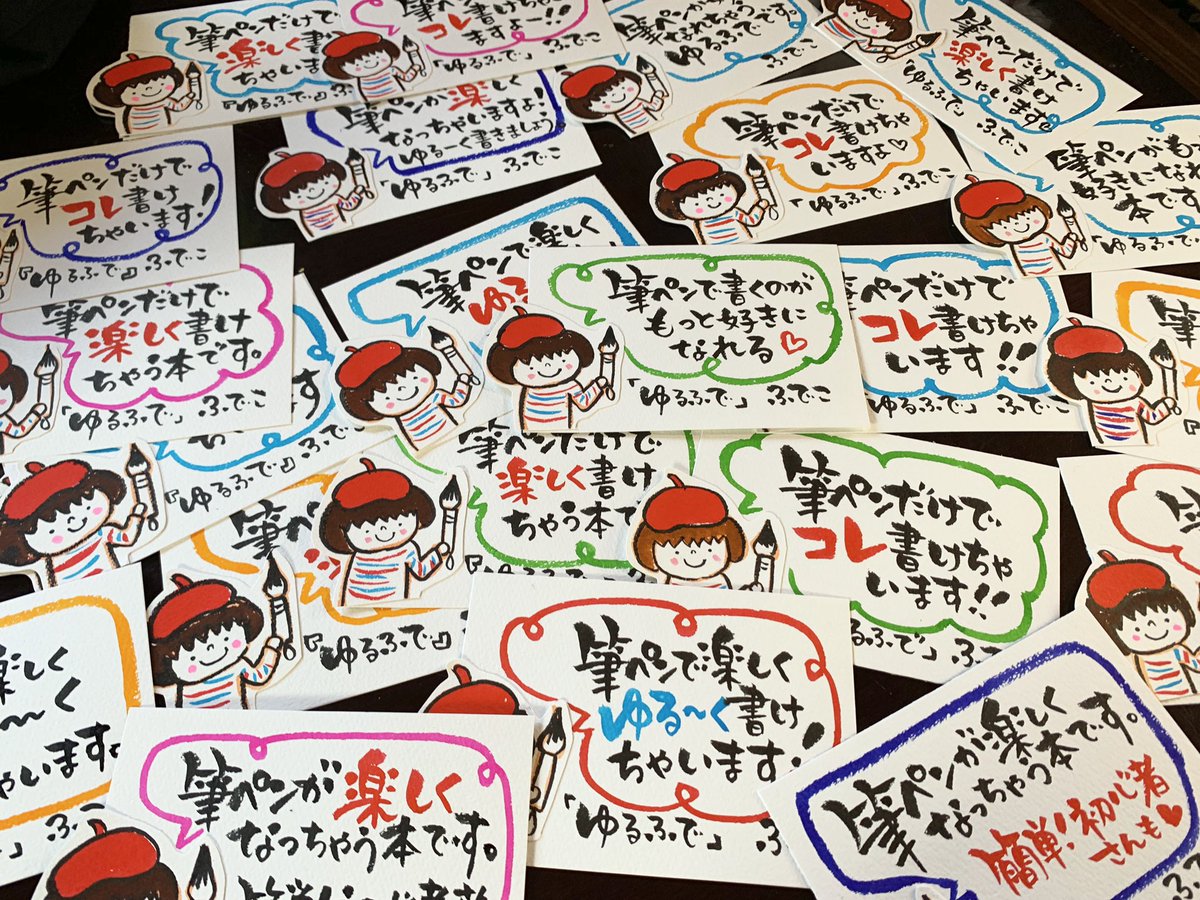 筆ペンだけで
楽しく書
ちゃいま
『ゆるふで』ふでこ
筆ペンだけで
コレ書け
ますよー!!
「ゆるふで」ふでこ
筆ペンが
なれちゃう本です
ゆるふで ふでこ
筆ペンだけで
楽しく書け
ちゃいます。
「ゆるふで」ふでこ
筆ペンが楽しく
なっちゃいますよ!
ゆるーく書きましょう
「ゆるふで」ふでこ
筆ペンだけで
コレ書けちゃ
いますよ♡
「ゆるふで」ふでこ
筆ペンがも
好きにな
本です
「ゆるふで
筆ペンだけで
コレ書け
ちゃいます!
『ゆるふで』ふでこ
筆ペンだけで
楽しく書け
ちゃう本です。
「ゆるふで」ふでこ
す
『ゆるふで』ふでこ
筆ペンで楽しく
ゆる
筆ペンで書くのが
もっと好きに
なれる♡
「ゆるふで」ふでこ
筆ペンだけで
コレ書けちゃ
います!!
ゆるふで」ふでこ
筆
筆ペンだけで
楽しく書け
ちゃう本で
『ゆるふで
筆ペン
『ゆるふで』
筆ペンだけで
コレ書けちゃ
います!!
ゆるふで」ふで
楽しく
〜く
ゃいます
ふこ
筆ペンで楽しく
ゆる〜く書け
ちゃいます!
「ゆるふで」ふ
筆ペンが楽しく
なっちゃう本です。
筆ペンが楽しく
なっちゃう本です。
簡単!初心者
さんも♥